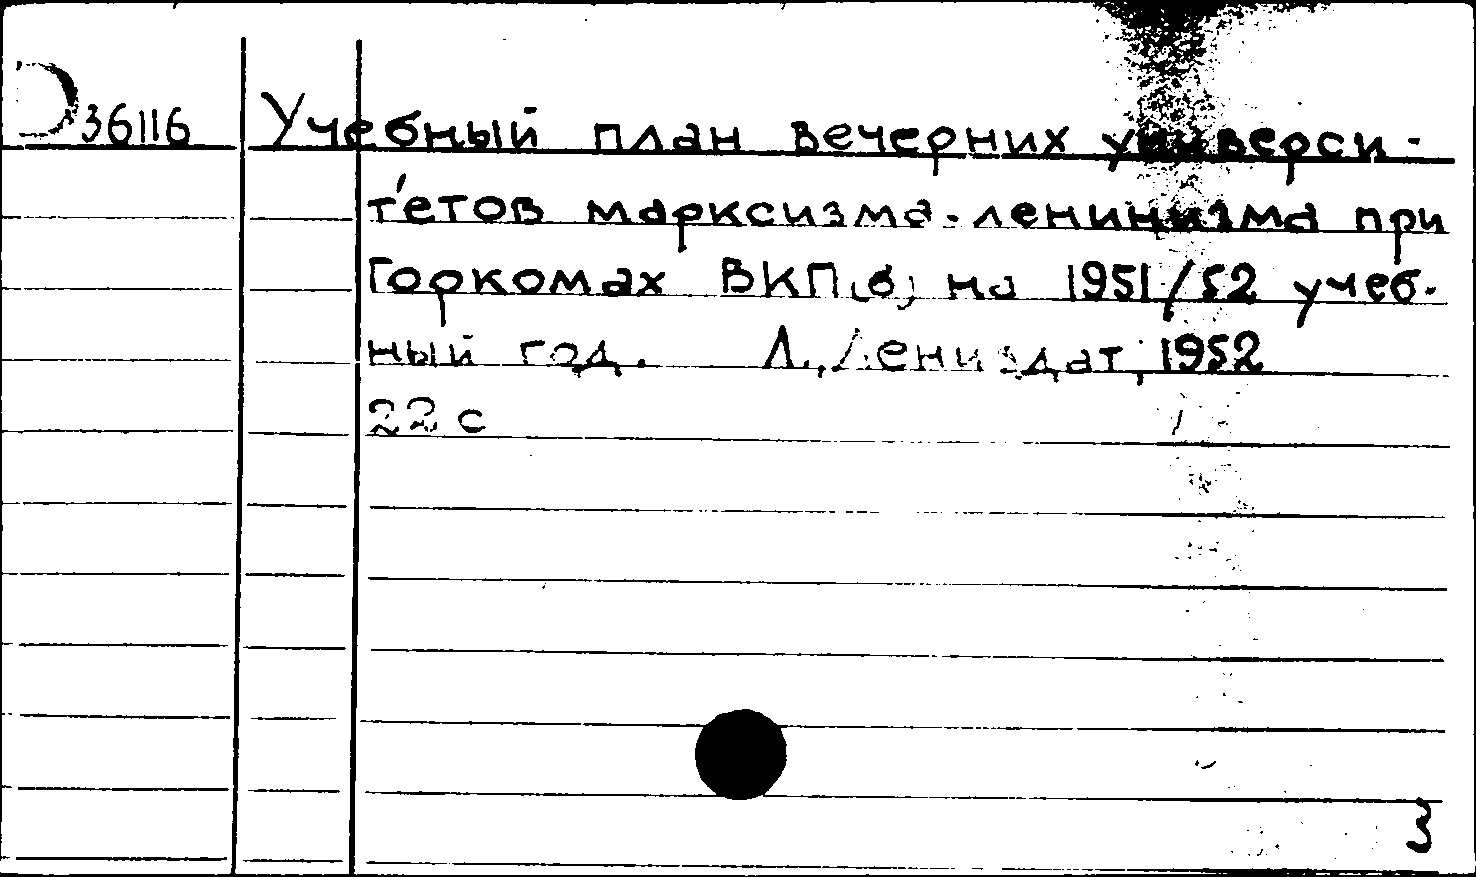 D36116 Учебный план вечерних универси-
тетов марксизма-ленинизма при
Горкомах ВКП(б) на 1951/52 учеб-
ный год. Л., Лениздат, 1952
22 с
3